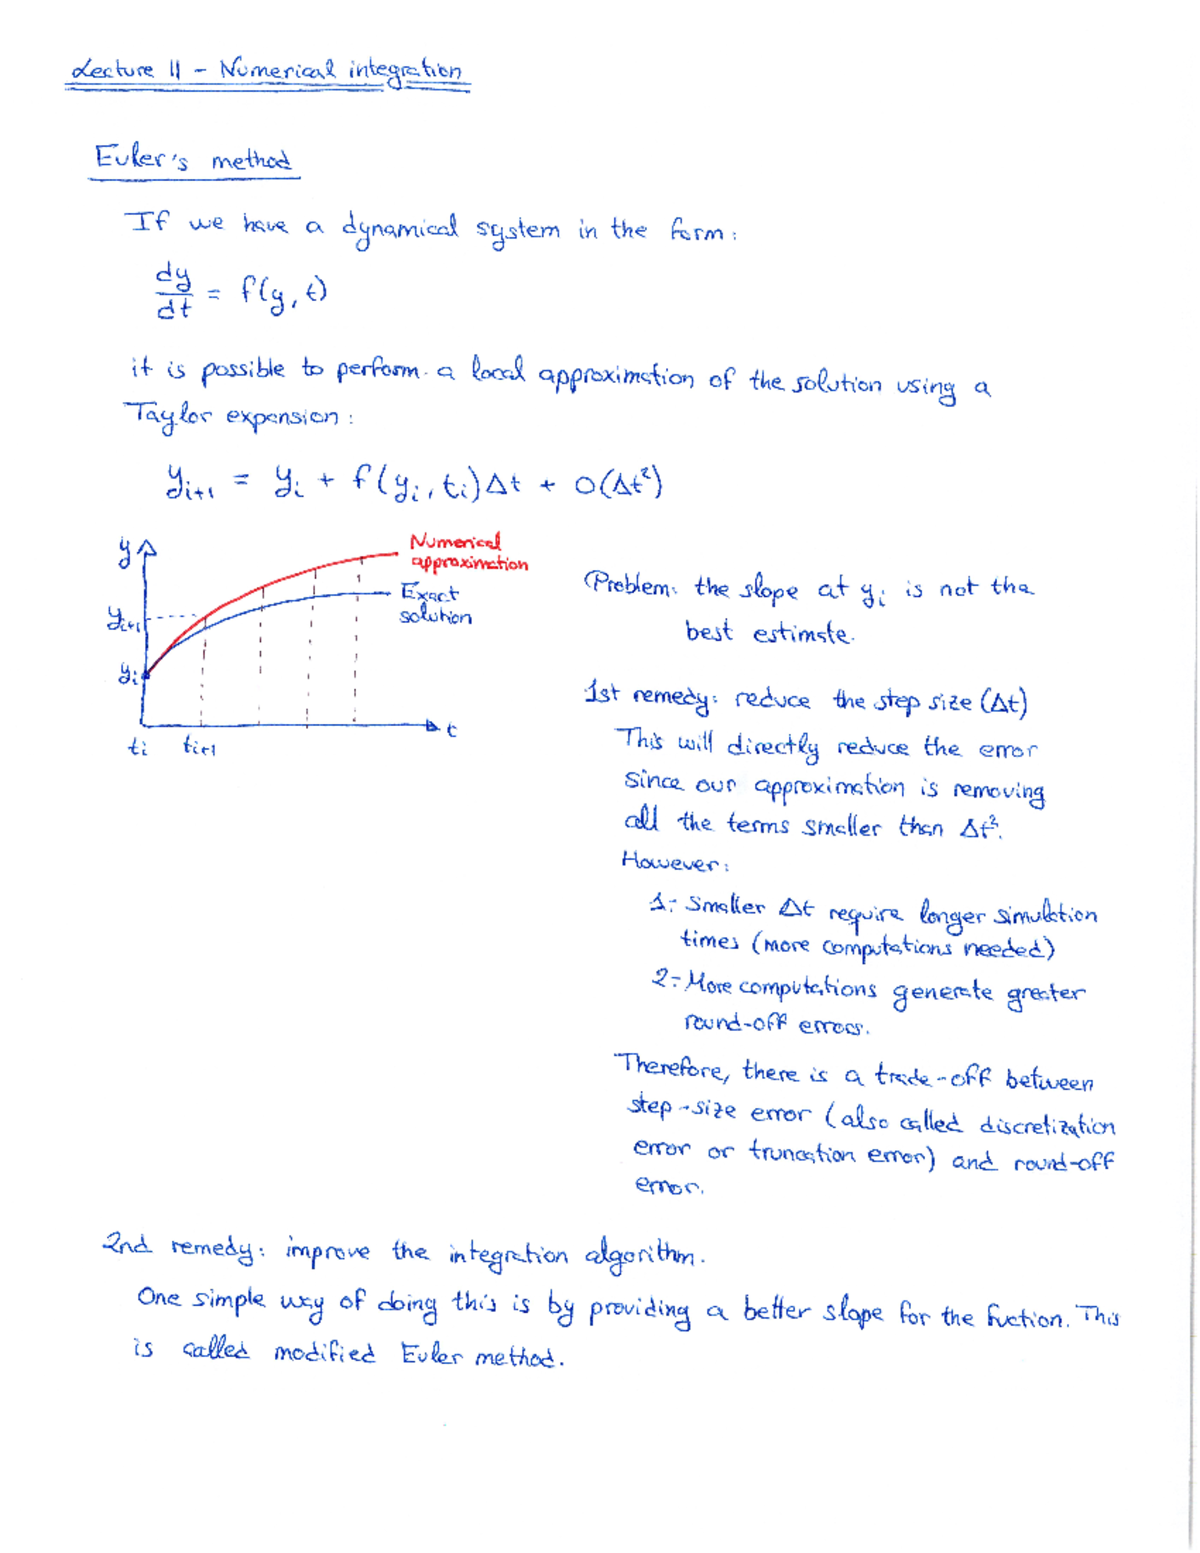 Lecture 11 - Numerical integration
Euler's method
If we have a dynamical system in the form:
dy/dt = f(y, t)
it is possible to perform a local approximation of the solution using a
Taylor expansion:
yi+1 = yi + f(yi, ti)Δt + O(Δt²)
y
Numerical
approximation
Exact
solution
yi+1
yi
t
ti ti+1
Problem: the slope at yi is not the
best estimate.
1st remedy: reduce the step size (Δt)
This will directly reduce the error
since our approximation is removing
all the terms smaller than Δt².
However:
1.- Smaller Δt require longer simulation
times (more computations needed)
2.- More computations generate greater
round-off errors.
Therefore, there is a trade-off between
step-size error (also called discretization
error or truncation error) and round-off
error.
2nd remedy: improve the integration algorithm.
One simple way of doing this is by providing a better slope for the fuction. This
is called modified Euler method.